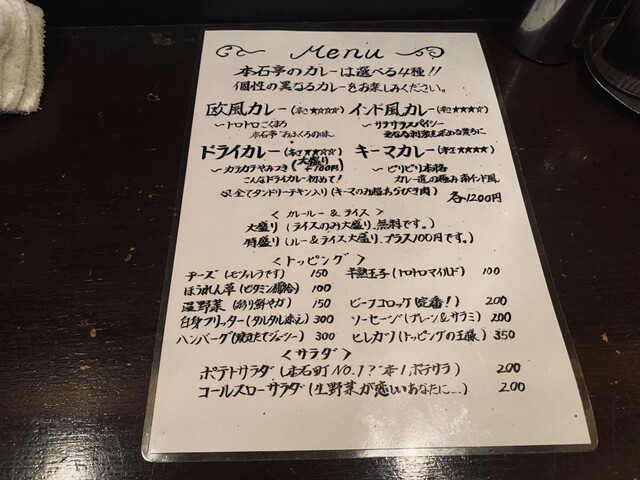 Menu
本石亭のカレーは選べる4種!!
個性の異なるカレーをお楽しみください。
欧風カレー(辛さ★☆☆☆☆) インド風カレー(辛さ★★★☆☆)
〜トロトロこくまろ 〜サラサラスパイシー
本石亭"おふくろの味 更なる刺激を求める貴方に
ドライカレー(辛さ★★☆☆☆) (大盛り+100円) キーマカレー(辛さ★★★★)
〜カラカラやみつき 〜ピリピリ本格
こんなドライカレー初めて! カレー道の極み 南インド風
全てタンドリーチキン入り(キーマのみ粗あらびき肉) 各1200円
<カレールー&ライス>
大盛り(ライスのみ大盛り、無料です。)
特盛り(ルー&ライス大盛り、プラス100円です。)
<トッピング>
チーズ(モツァレラです) 150 半熟玉子(トロトロマイルド) 100
ほうれん草(ビタミン補給) 100
温野菜(彩り鮮やか) 150 ビーフコロッケ(定番!) 200
白身フリッター(タルタル添え) 300 ソーセージ(プレーン&サラミ) 200
ハンバーグ(焼きたてジューシー) 300 ヒレカツ(トッピングの王様) 350
<サラダ>
ポテトサラダ(本石町NO.1? 本1ポテサラ) 200
コールスローサラダ(生野菜が恋しいあなたに…) 200